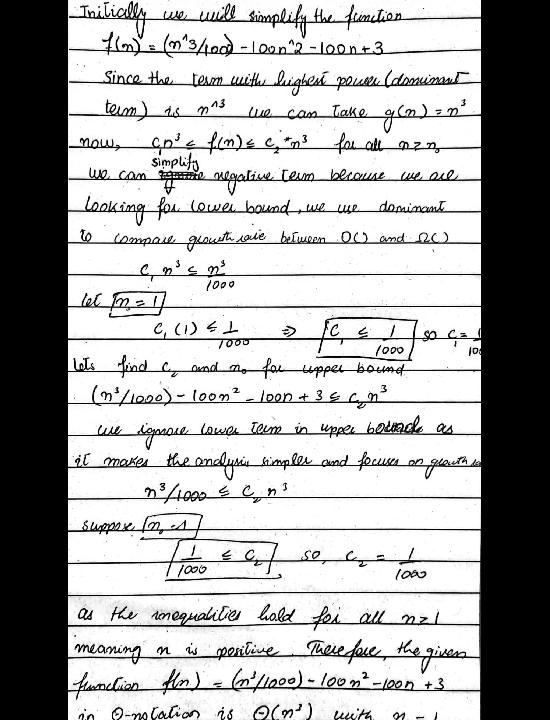 Initically we will simplify the function
f(n) = (n^3/1000) - 100n^2 - 100n + 3
Since the term with highest power (dominant
term) is n^3 we can take g(n) = n³
now, c₁n³ ≤ f(n) ≤ c₂*n³ for all n ≥ n₀
we can simplify negative term because we are
looking for lower bound, we use dominant
to compare growth rate between O() and Ω()
C₁ n³ ≤ n³/1000
let n₀ = 1
C₁ (1) ≤ 1/1000 ⇒ C₁ ≤ 1/1000 so C₁ =
lets find C₂ and n₀ for upper bound
(n³/1000) - 100n² - 100n + 3 ≤ C₂ n³
we ignore lower term in upper bounds as
it makes the analysis simpler and focuses on growth
n³/1000 ≤ C₂ n³
suppose n₀ = 1
1/1000 ≤ C₂ so, C₂ = 1/1000
as the inequalities hold for all n ≥ 1
meaning n is positive. Therefore, the given
function f(n) = (n³/1000) - 100n² - 100n + 3
in Θ-notation is Θ(n³) with n = 1